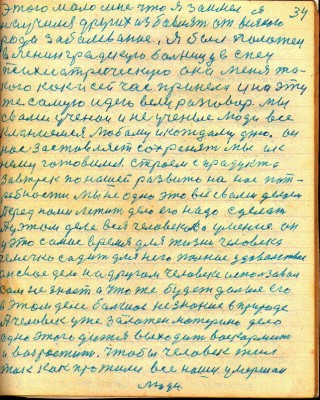 этого мало мне что я занялся я 34
научил других избавит от всякого
рода заболевание, я был положен
в Ленинградскую болницу в спец
психиатрическую она меня та-
кого как и сейчас принела и на эту
те самую идею вели разговор. мы
с вами ученои и не ученые люди все
кланяемся любому и каждому дню. он
нас заставляет сохранят мы их
нами готовимся. строем с продукта
завтрек по нашей развито на нас пот-
ребности мы не одно это всё с вами делаем
перед нами летит дело его надо сделат
в этом деле вся человека умение он
это самое время для жизни человека
семечко садит для него полное удовольствие
он свое дело и с другом человеке использовал
сам не знает а что же будет далше его
в этом деле болное не знание в природе
А человек уже захотел материно дело
одно этого дитя выходит воскармит
и возростит. чтобы человек жил
так как прожили все наши умершии
люди.